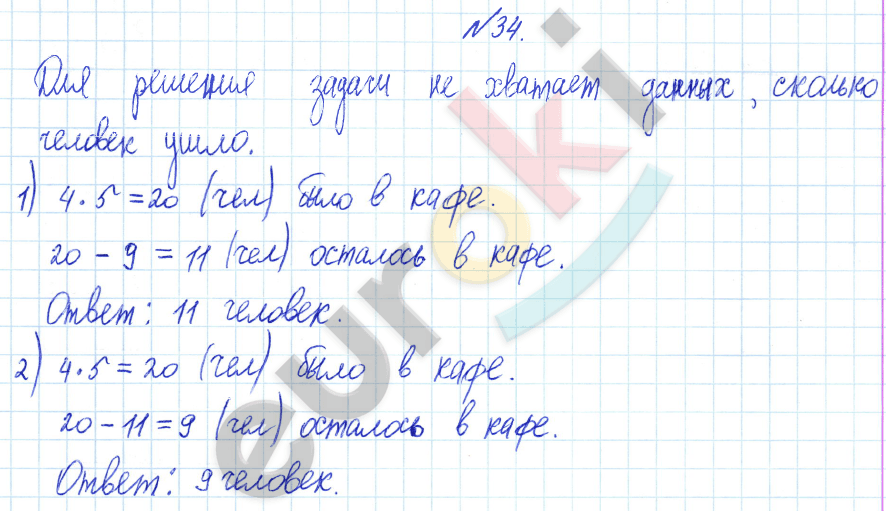 №34.
Для решения задачи не хватает данных, сколько
человек ушло.
1) 4·5=20 (чел) было в кафе.
20 - 9 = 11 (чел) осталось в кафе.
Ответ: 11 человек.
2) 4·5=20 (чел) было в кафе.
20-11=9 (чел) осталось в кафе.
Ответ: 9 человек.
euroki